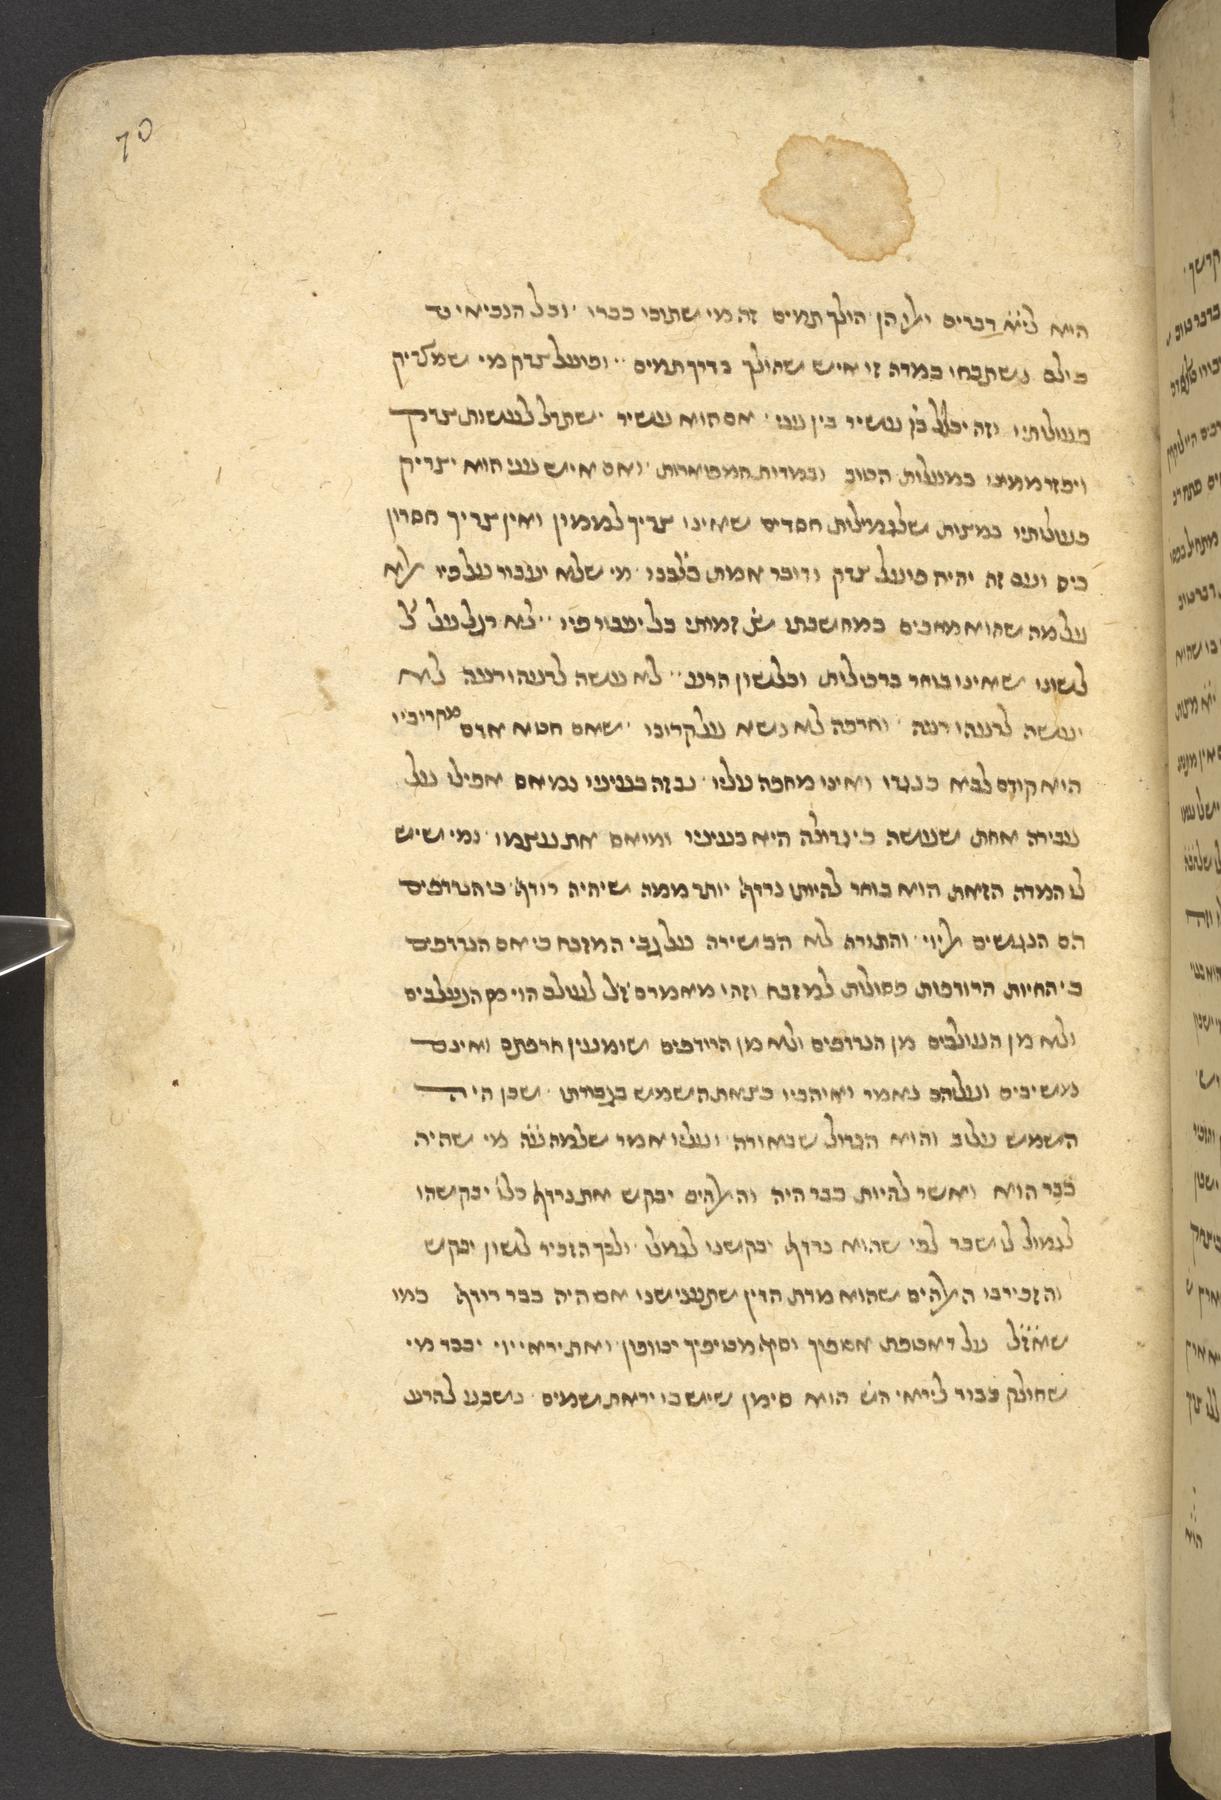 70
היא לי״א דברים ואלו הן הולך תמים זה מי שתוכו כברו וכל הנביאי׳ ט
כולם נשתבחו במדה זו איש שהולך בדרך תמים ופועל צדק מי שמצדיק
פעולותיו וזה יכלל בין עשיר בין עני אם הוא עשיר ישתדל לעשות צדק
ויפזר ממונו במעלות הטוב ובמדות המפוארות ואם איש עני הוא יצדיק
פעולותיו במצות שלגמילות חסדים שאינו צריך לממון ואין צריך חסרון
כיס ועם זה יהיה פועל צדק ודובר אמת בלבבו מי שלא יעבור על פיו אלא
על מה שהוא מסכים במחשבתו זמותי בל יעבור פיו לא רגל על
לשונו שאינו בוחר ברכילות ובלשון הרע לא עשה לרעהו רעה לא
יעשה לרעהו רעה וחרפה לא נשא על קרובו שאם חטא אדם מקרוביו
הוא קודם לבא כנגדו ואינו מחפה עליו נבזה בעיניו נמאס אפילו על
עבירה אחת שעושה כי גדולה היא בעיניו ומואס את עצמו ומי שיש
לו המדה הזאת הוא בוחר להיות נרדף יותר ממה שיהיה רודף כי הנרדפים
הם הנגשים אל יוי והתורה לא הכשירה על גבי המזבח כי אם הנרדפים
כי החיות הרודפות פסולות למזבח וזהו מאמרם ז״ל לעולם הוי מן הנעלבים
ולא מן העולבים מן הנרדפים ולא מן הרודפים שומעין חרפתם ואינם
משיבים ועליהם נאמר ואוהביו כצאת השמש בגבורתו שכן היה
השמש עלוב והוא הגדול שבאורה ועליו אמר שלמה ע״ה מי שהיה
כבר הוא ואשר להיות כבר היה והאלהים יבקש את נרדף כלו׳ יבקשהו
לגמול לו שכר לפי שהוא נרדף יבקשנו לגמלו ולכך הזכיר לשון יבקש
והזכיר בו האלהים שהוא מדת הדין שתענישנו אם היה כבר רודף כמו
שא״ז״ל על דאטפת אטפוך וסוף מטיפיך יטופון ואת יראי יוי יכבד מי
שחולק כבוד ליראי הש׳ הוא סימן שיש בו יראת שמים נשבע להרע